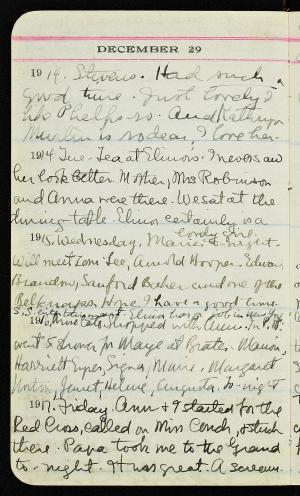 DECEMBER 29
1914. Stevens. Had such a
good time. Just lovely. I
like Phelps so. And Kathryn
is so dear, I love her.
1914 Tue. Tea at Elinor's. I never saw
her look better. Mother, Mrs Robinson
and Anna were there. We sat at the
dining table. Elinor certainly is a
lovely girl.
1915. Wednesday, to-night.
Will meet Lee, Arnold Hooper. Edward
Brandon, Sanford Baker and one of the
Hope I have a good time.
Elinor
1916, shopped with Ann. In P.M.
went to shower for Marge at Brates. Marion,
Harriett Signa, Marie. Margaret
Norton, Janet, Helene, Augusta. to-night
1917. Friday. Ann & I started for the
Red Cross, called on Miss stuck
there. Papa took me to the Grand
to-night. It was great. A scream.